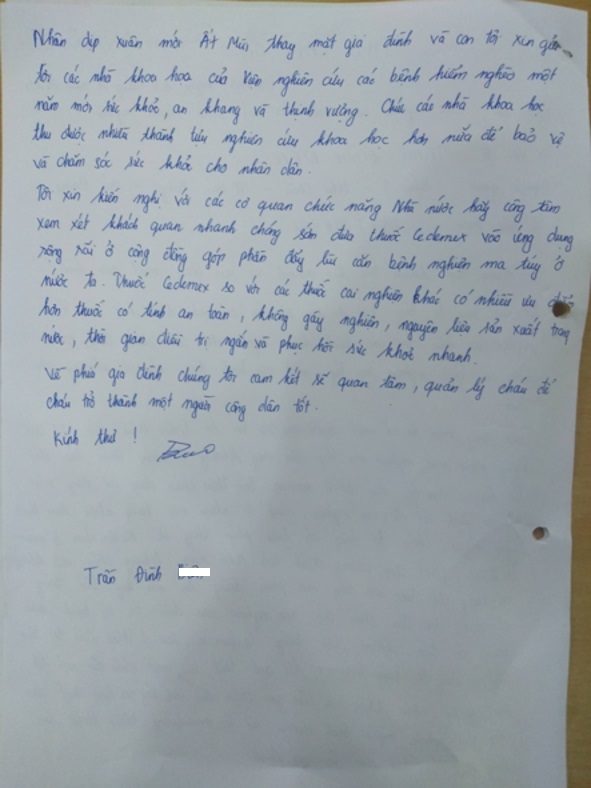 Nhân dịp xuân mới Ất Mùi, thay mặt gia đình và con tôi xin gửi
tới các nhà khoa hoa của viện nghiên cứu các bệnh hiểm nghèo một
năm mới sức khỏe, an khang và thịnh vượng. Chúc các nhà khoa học
thu được nhiều thành tựu nghiên cứu khoa học hơn nữa để bảo vệ
và chăm sóc sức khỏe cho nhân dân.
Tôi xin kiến nghị với các cơ quan chức năng Nhà nước hãy công tâm
xem xét khách quan nhanh chóng sớm đưa thuốc Cedemex vào ứng dụng
rộng rãi ở cộng đồng góp phần đẩy lùi căn bệnh nghiện ma túy ở
nước ta. Thuốc Cedemex so với các thuốc cai nghiện khác có nhiều ưu điểm
hơn thuốc có tính an toàn, không gây nghiện, nguyên liệu sản xuất trong
nước, thời gian điều trị ngắn và phục hồi sức khỏe nhanh.
Về phía gia đình chúng tôi cam kết sẽ quan tâm, quản lý cháu để
cháu trở thành một người công dân tốt.
Kính thư !
Trần Đình